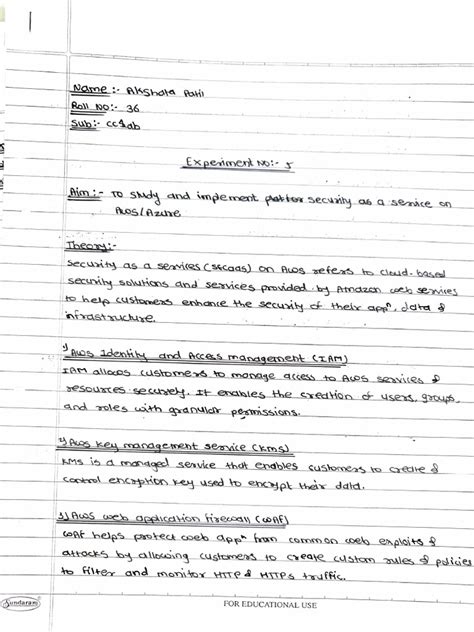 Name :- Akshata Patil
Roll No:- 36
Sub:- cc Lab
Experiment No:- 5
Aim :- To study and implement security as a service on
AWS/Azure
Theory:-
Security as a services (seccaas) on Aws refers to cloud-based
security solutions and services provided by Amazon web services
to help customers enhance the security of their appⁿ, data &
infrastructure.
1) Aws Identity and Access management (IAM)
IAM allows customers to manage access to Aws services &
resources securely. It enables the creation of users, groups,
and roles with granular permissions.
2) Aws key management service (kms)
KMS is a managed service that enables customers to create &
control encryption key used to encrypt their data.
3) Aws web application firewall (WAF)
WAF helps protect web appⁿ from common web exploits &
attacks by allowing customers to create custom rules & policies
to filter and monitor HTTP & HTTPs traffic.
Sundaram
FOR EDUCATIONAL USE